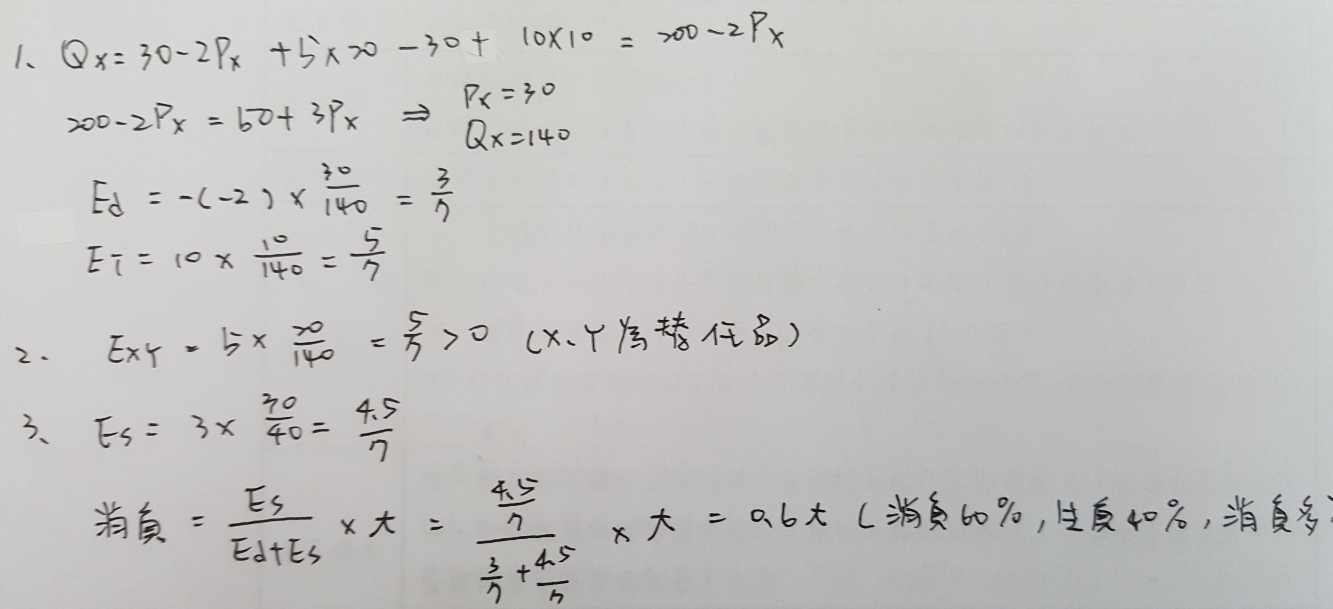 1、 Qx = 30 - 2Px + 5×20 - 30 + 10×10 = 200 - 2Px
200 - 2Px = 50 + 3Px ⇒ Px = 30
Qx = 140
Ed = -(-2) × 30/140 = 3/7
EI = 10 × 10/140 = 5/7
2. EXY = 5 × 20/140 = 5/7 > 0 (X、Y为替代品)
3、 Es = 3 × 30/40 = 4.5/7
消负 = Es/(Ed+Es) × t = (4.5/7)/(3/7 + 4.5/7) × t = 0.6t (消负60%, 生负40%, 消负多